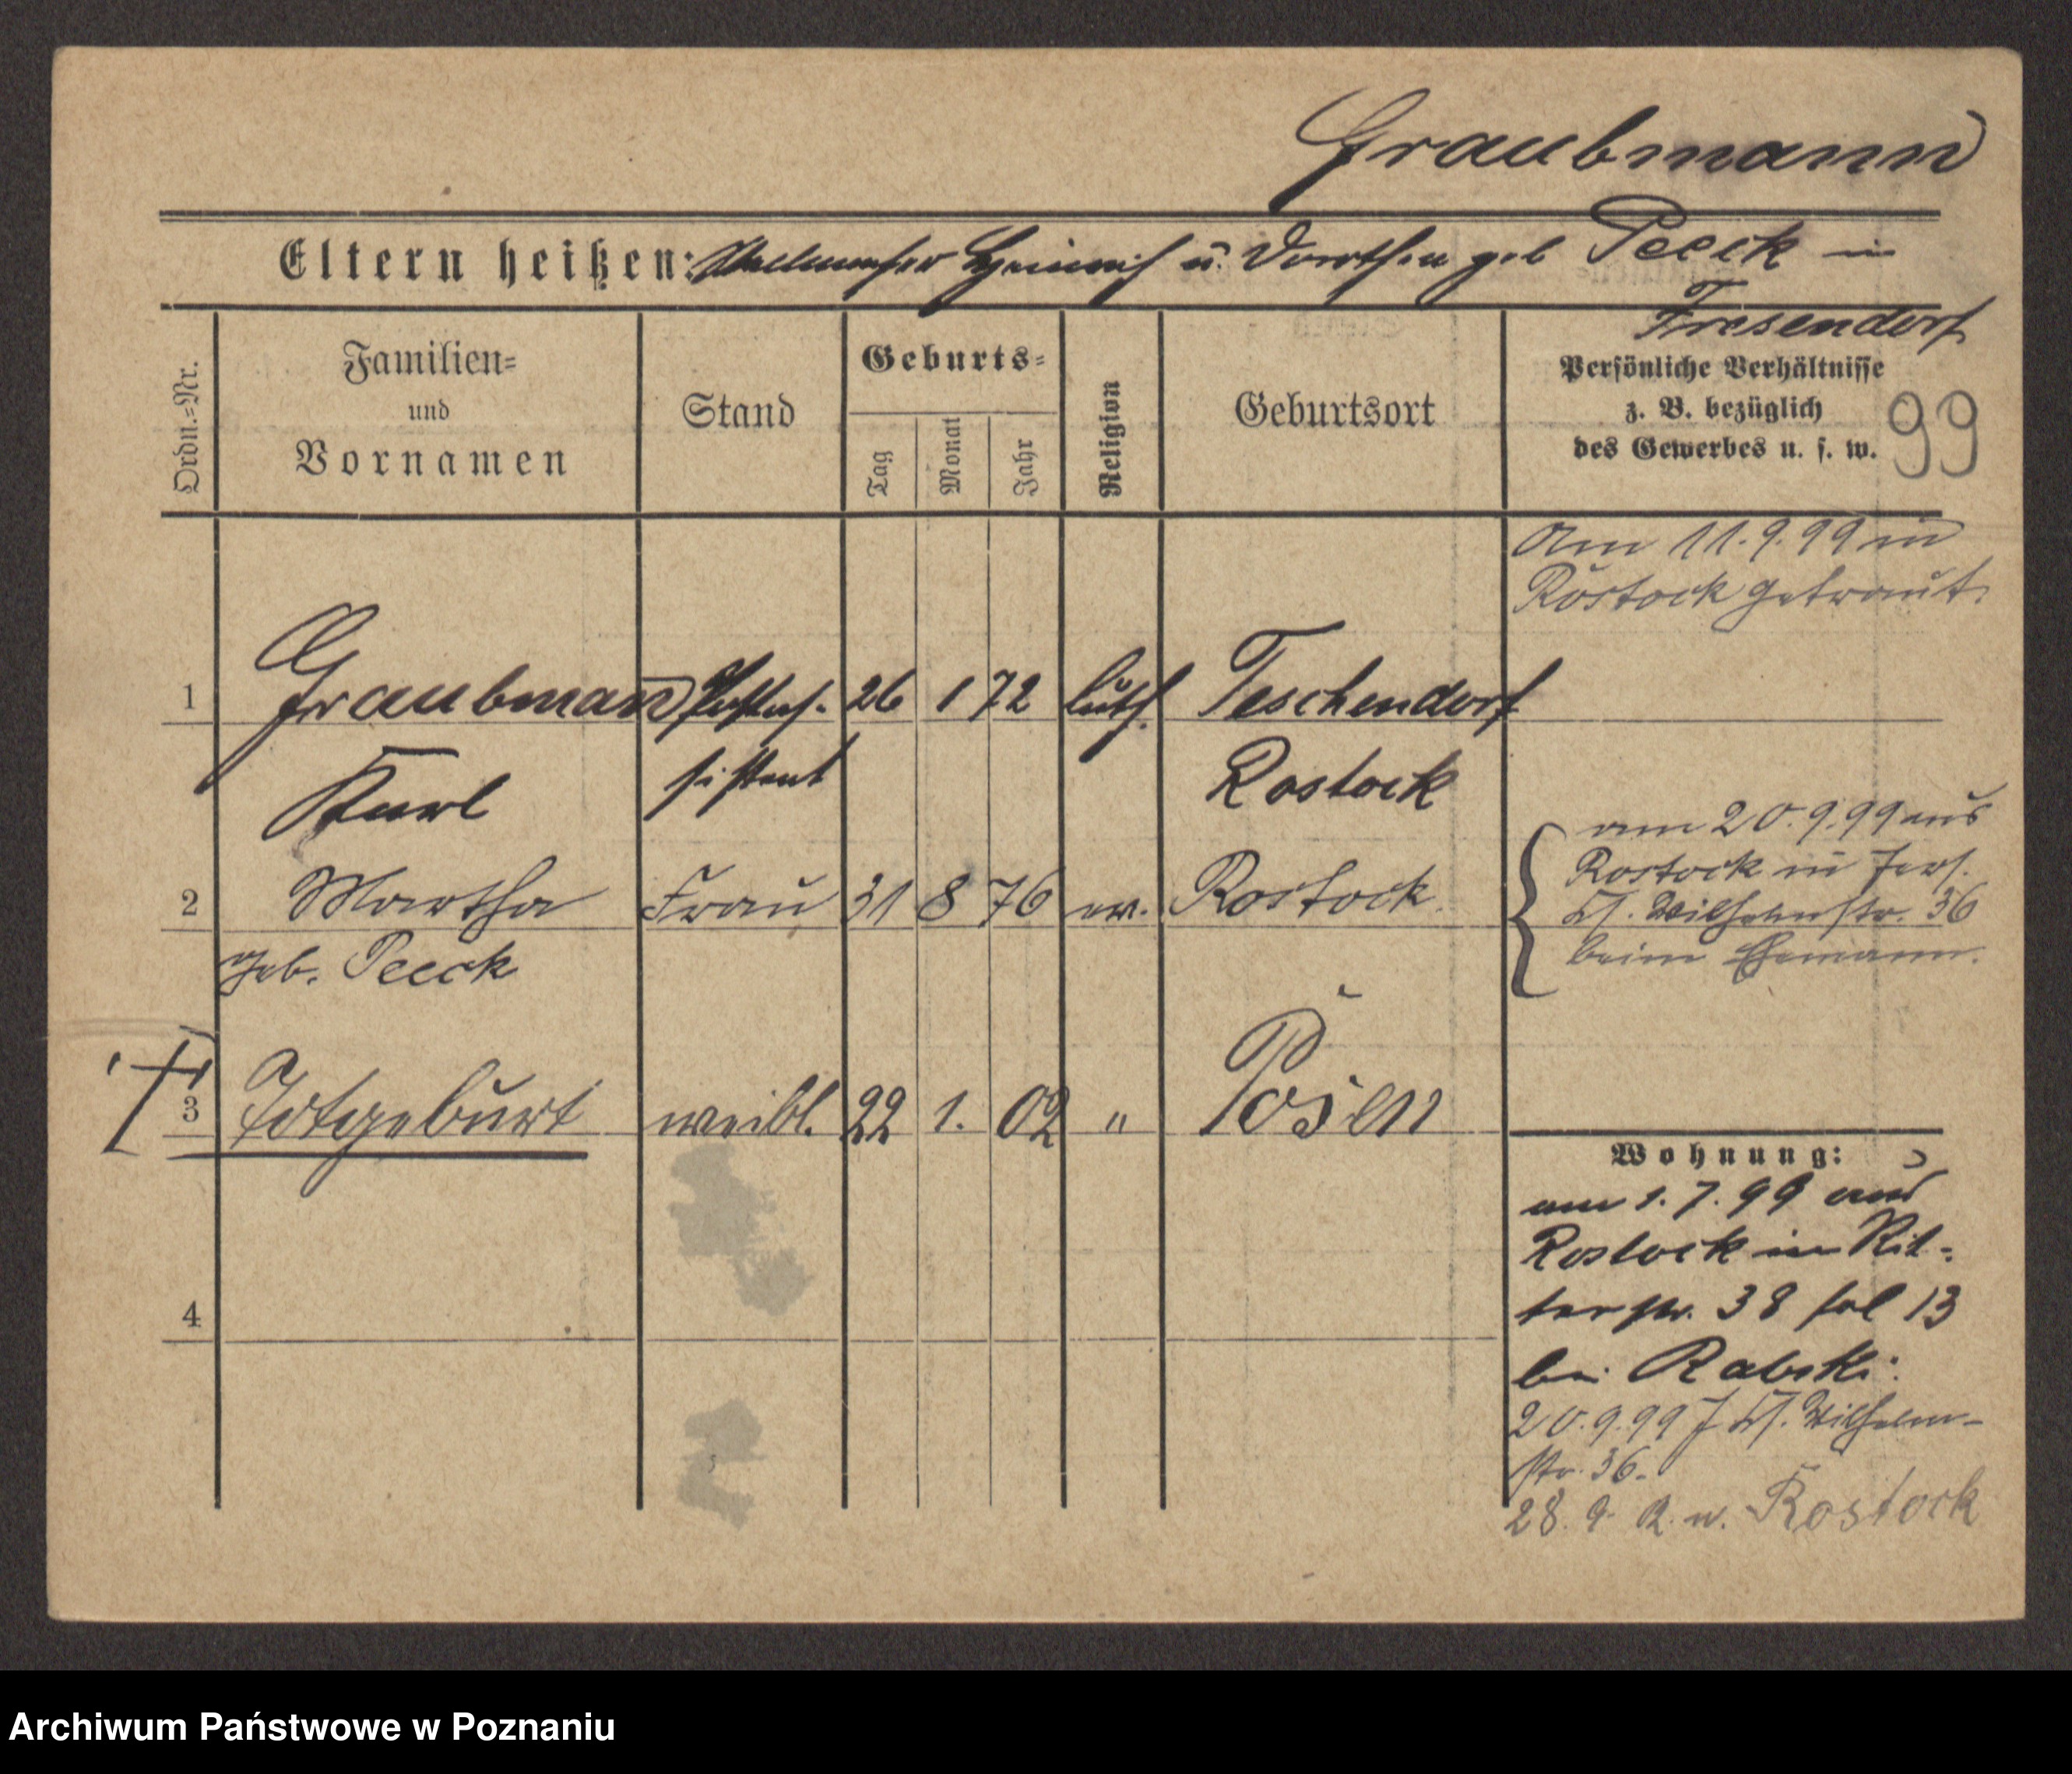 Graubmann
Eltern heißen: Stellmacher Heinrich u. Dorothea geb Peeck in
Fresendorf
Ordn.=Nr.
Familien=
und
Vornamen
Stand
Geburts=
Tag
Monat
Jahr
Religion
Geburtsort
Persönliche Verhältnisse
z. B. bezüglich
des Gewerbes u. s. w.
99
Am 11.9.99 in
Rostock getraut.
1 Graubmann Postas- 26 1 72 luth. Teschendorf
Karl sistent Rostock
2 Martha Frau 31 8 76 ev. Rostock
geb. Peeck
am 20.9.99 aus
Rostock in Jers.
Kl. Wilhelmstr. 36
beim Ehemann.
† 3 Totgeburt weibl. 22 1. 02 " Posen
4
Wohnung:
am 1.7.99 aus
Rostock in Rit-
terstr. 38 fol 13
bei Rabski.
20.9.99 J Kl. Wilhelm-
str. 36.
28. 9. R. n. Rostock
Archiwum Państwowe w Poznaniu